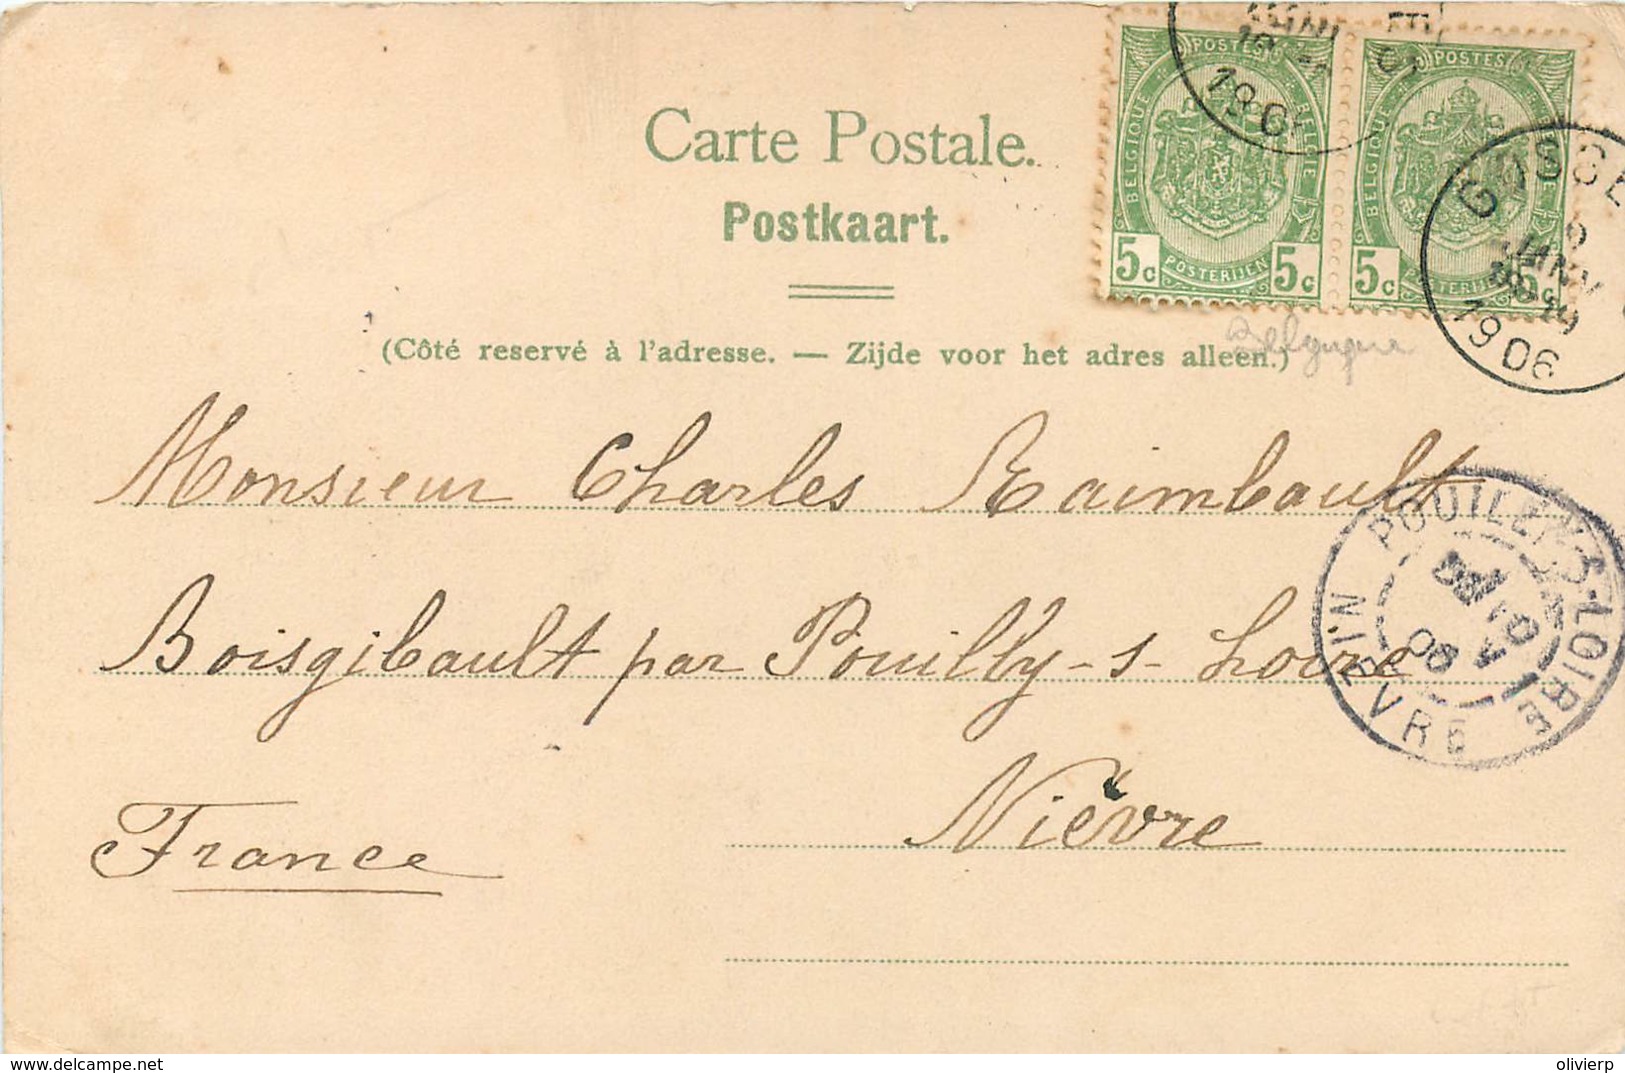 Carte Postale.
Postkaart.
(Côté reservé à l'adresse. — Zijde voor het adres alleen.)
POSTES
BELGIQUE
BELGIE
POSTERIJEN
5c 5c
POSTES
BELGIQUE
POSTERIJEN
5c 5c
1906
GOSSE
9
JANV
18-19
1906
Belgique
Monsieur Charles Raimbault
Boisgibault par Pouilly-s-Loire
Nièvre
France
POUILLY-S-LOIRE
NIÈVRE
06
delcampe.net
olivierp